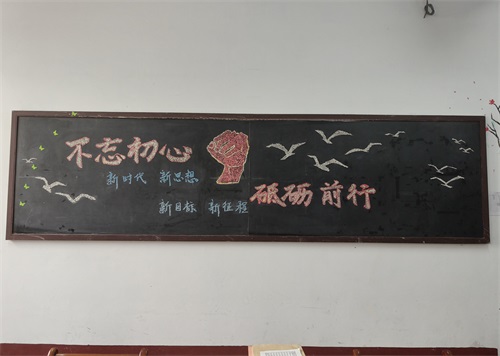 不忘初心
新时代 新思想
新目标 新征程
砥砺前行